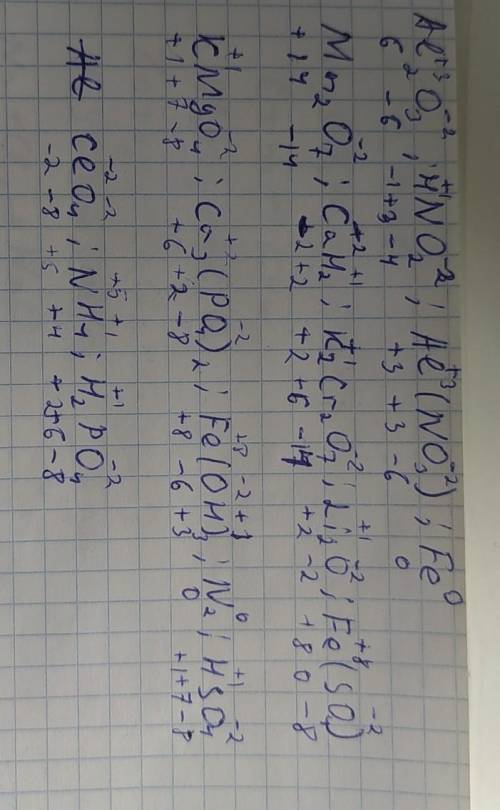 Al⁺³₂O₃⁻² ; H⁺¹NO₂⁻² ; Al⁺³(NO₃⁻²) ; Fe⁰
6 -6 -1+3-4 +3 +3 -6 0
Mn₂O₇⁻² ; Ca⁺²H₂⁺¹ ; K₂⁺¹Cr₂O₇⁻² ; Li₂⁺¹O⁻² ; Fe⁺⁸(SO₄)⁻²
+14 -14 -2+2 +2 +6 -14 +2 -2 +8 0 -8
K⁺¹MgO₄⁻² ; Ca₃⁺²(PO₄)₂⁻² ; Fe⁺⁸(O⁻²H⁺¹)₃ ; N₂⁰ ; H⁺¹SO₄⁻²
+1+7-8 +6+2-8 +8 -6 +3 0 +1+7-8
Al Ce⁻²O₄⁻² ; N⁺⁵H₄⁺¹ ; H₂⁺¹PO₄⁻²
-2 -8 +5 +4 +2+6-8